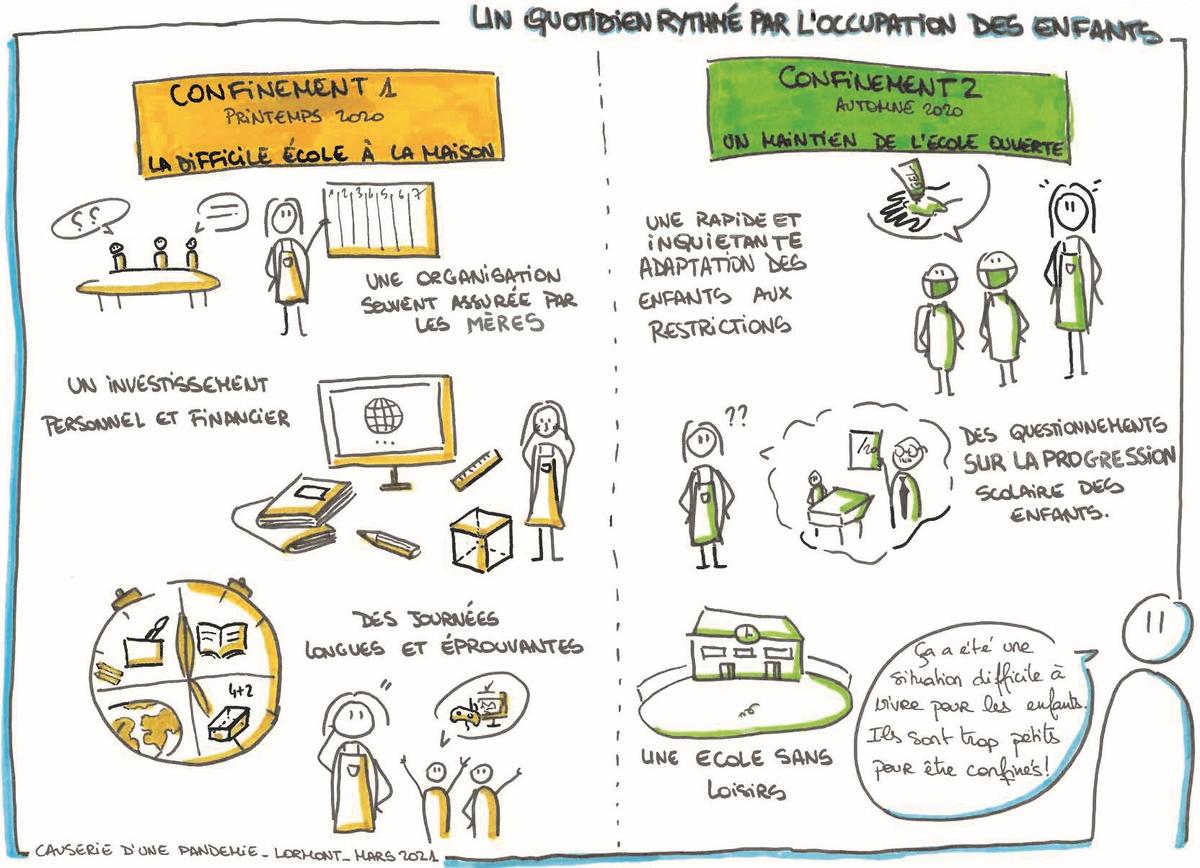 UN QUOTIDIEN RYTHMÉ PAR L'OCCUPATION DES ENFANTS
CONFINEMENT 1
PRINTEMPS 2020
LA DIFFICILE ÉCOLE À LA MAISON
??
1 2 3 4 5 6 7
UNE ORGANISATION
SOUVENT ASSURÉE PAR
LES MÈRES
UN INVESTISSEMENT
PERSONNEL ET FINANCIER
DES JOURNÉES
LONGUES ET ÉPROUVANTES
4+2
CONFINEMENT 2
AUTOMNE 2020
UN MAINTIEN DE L'ECOLE OUVERTE
GEL
UNE RAPIDE ET
INQUIETANTE
ADAPTATION DES
ENFANTS AUX
RESTRICTIONS
??
/20
DES QUESTIONNEMENTS
SUR LA PROGRESSION
SCOLAIRE DES
ENFANTS.
UNE ECOLE SANS
LOISIRS
Ça a été une
situation difficile à
vivre pour les enfants.
Ils sont trop petits
pour être confinés!
CAUSERIE D'UNE PANDEMIE_LORMONT_MARS 2021